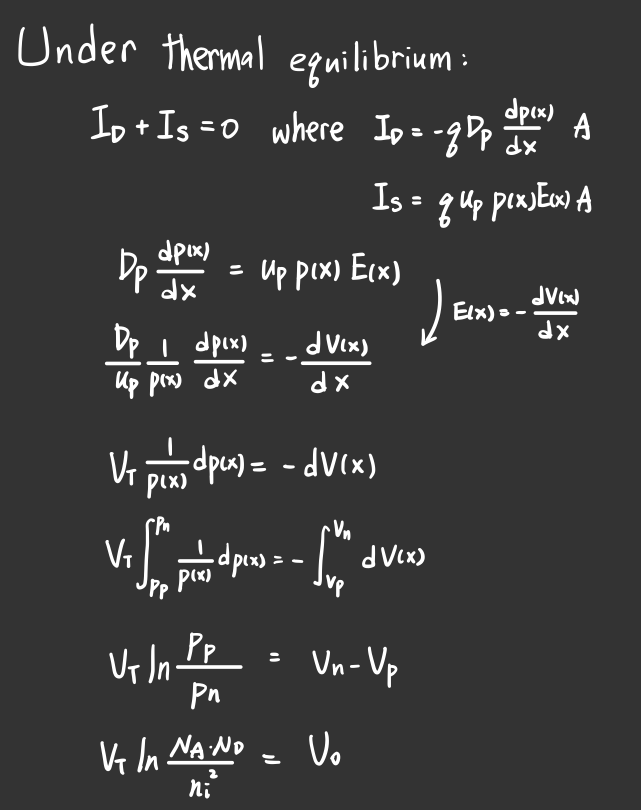 Under thermal equilibrium:
I_D + I_S = 0 where I_D = -q D_p dp(x)/dx A
I_S = q u_p p(x) E(x) A
D_p dp(x)/dx = u_p p(x) E(x)
E(x) = - dV(x)/dx
D_p/u_p 1/p(x) dp(x)/dx = - dV(x)/dx
V_T 1/p(x) dp(x) = - dV(x)
V_T ∫_{p_p}^{p_n} 1/p(x) dp(x) = - ∫_{V_p}^{V_n} dV(x)
V_T ln P_p/P_n = V_n - V_p
V_T ln N_A·N_D/n_i² = V_o